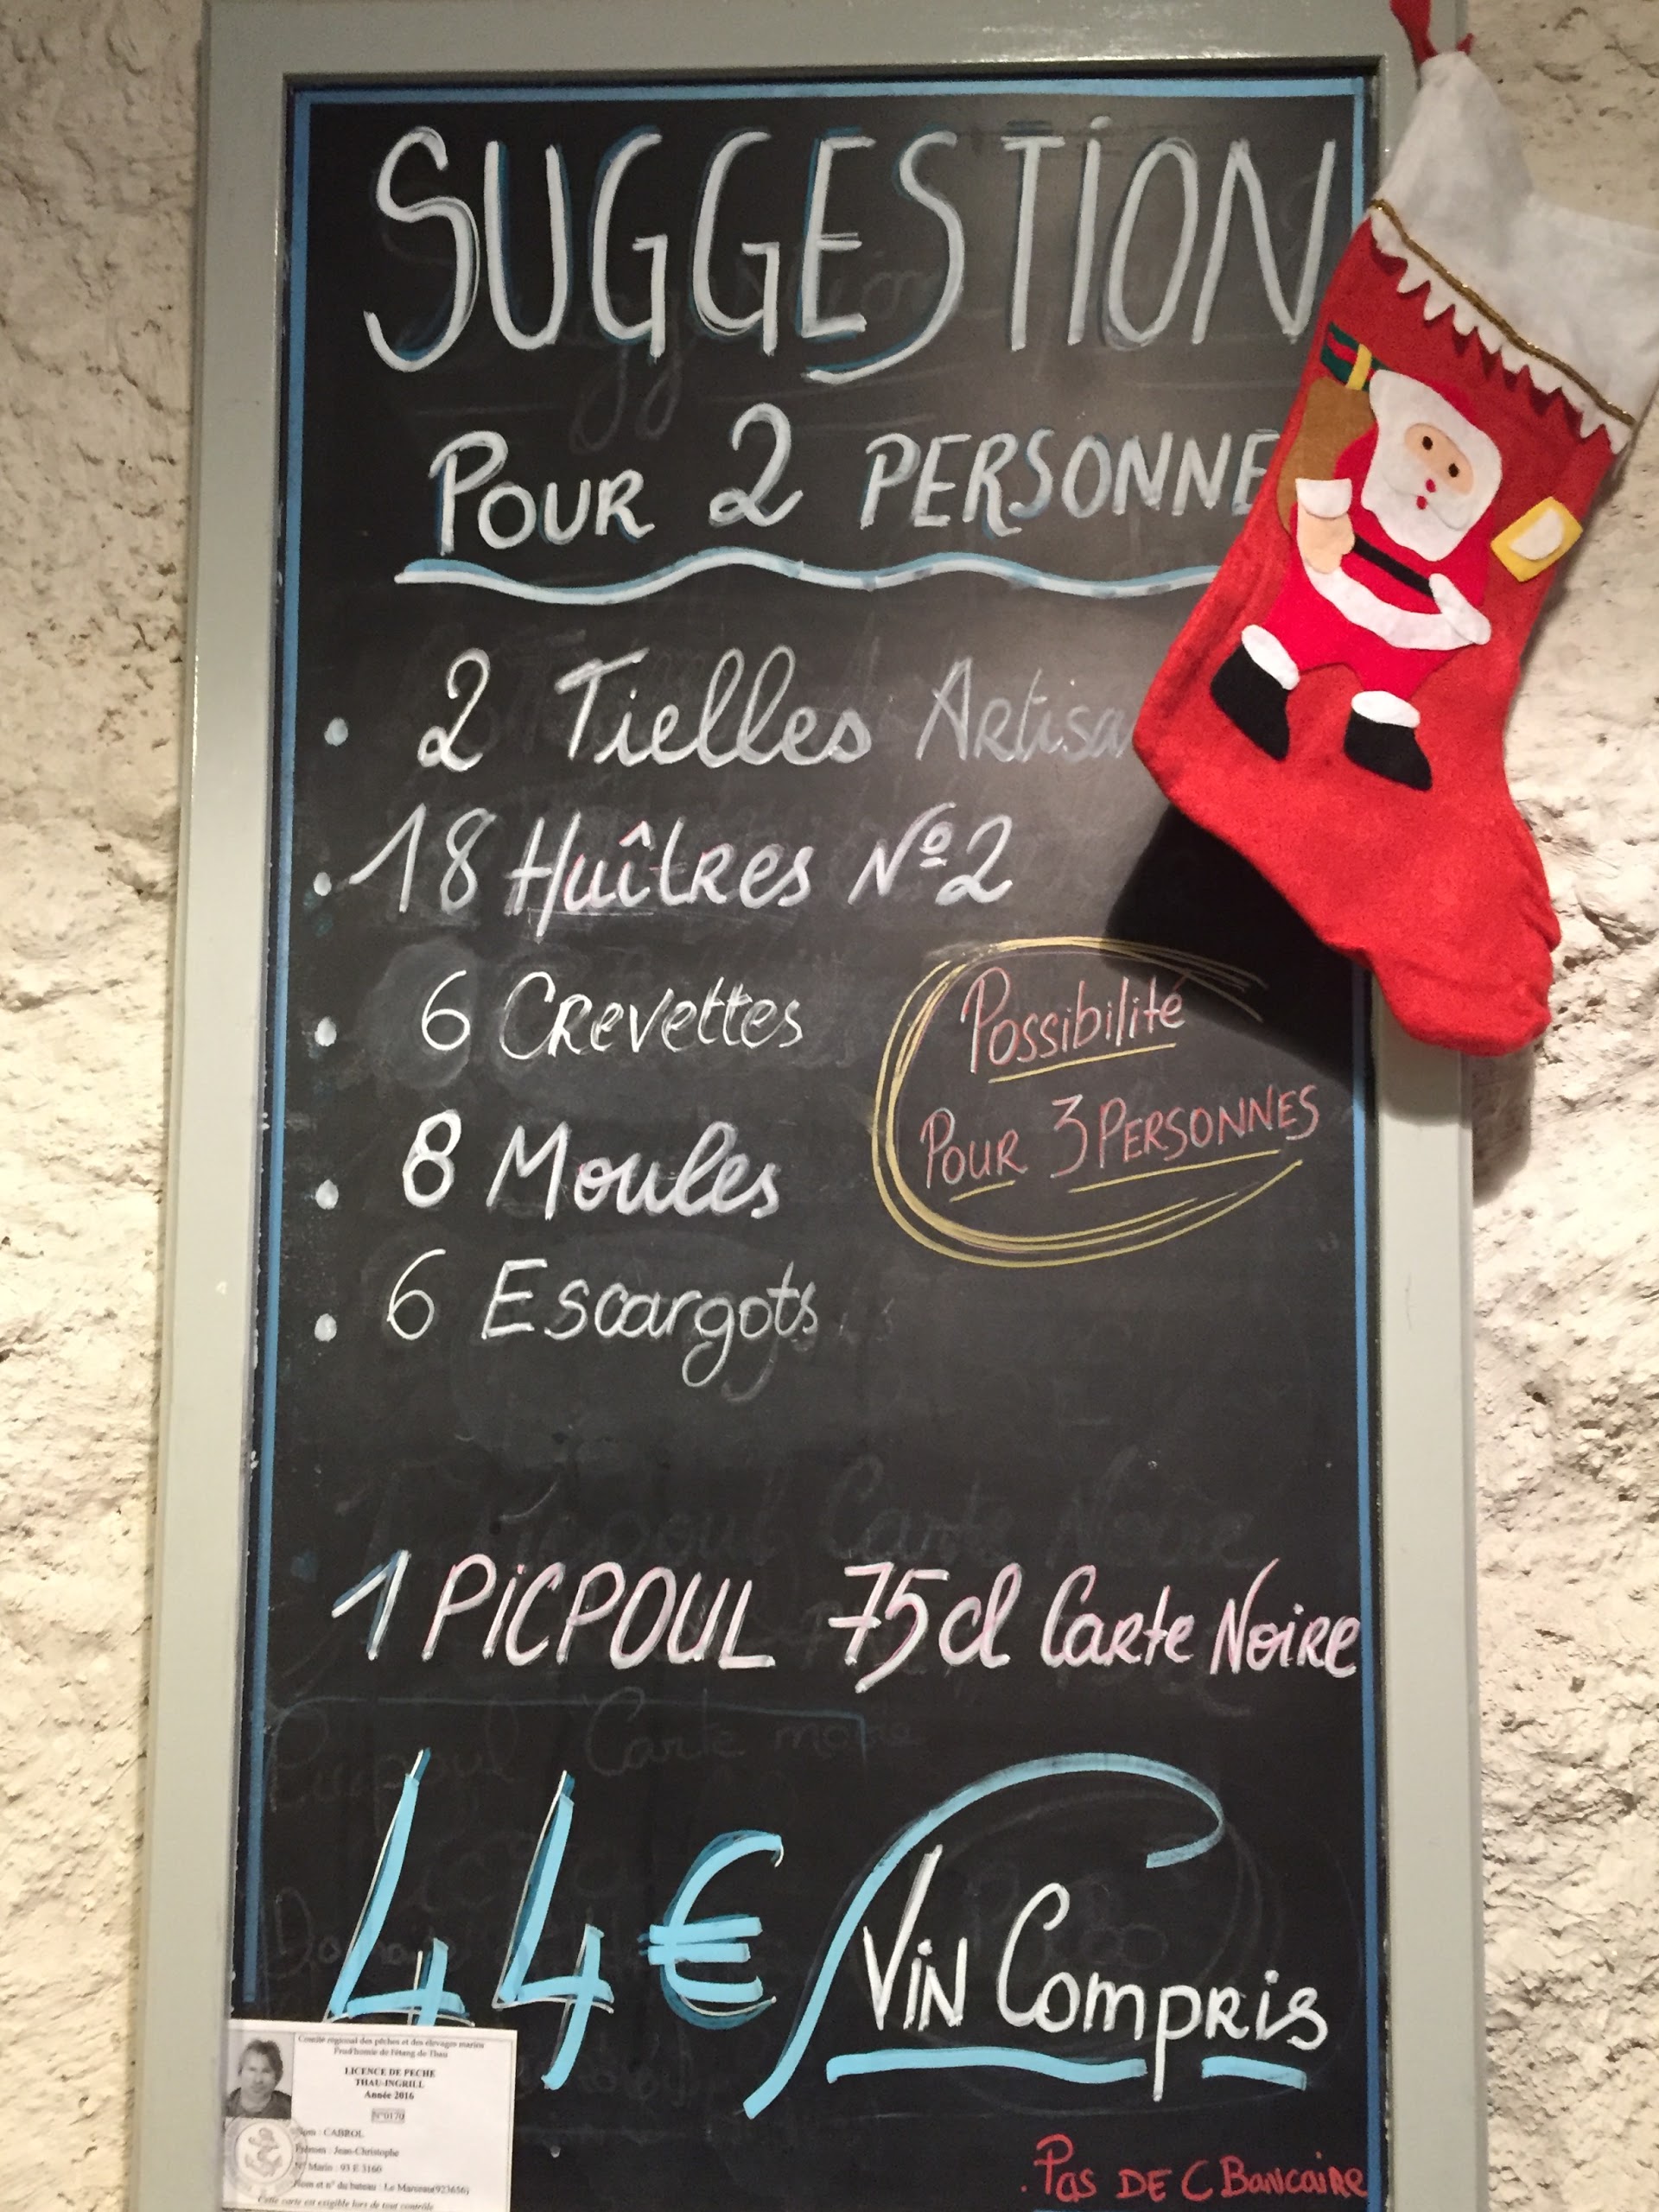 SUGGESTION
POUR 2 PERSONNE
. 2 Tielles Artisa
. 18 Huîtres Nº2
. 6 Crevettes
. 8 Moules
. 6 Escargots
Possibilité
POUR 3 PERSONNES
1 PICPOUL 75cl Carte Noire
44€ VIN COMPRIS
. PAS DE C BANCAIRE
Comité régional des pêches et des élevages marins
Prud'homie de l'étang de Thau
LICENCE DE PECHE
THAU-INGRILL
Année 2016
N°0170
Nom : CABROL
Prénom : Jean-Christophe
N° Marin : 93 E 3160
Nom et n° du bateau : Le
Cette carte est exigible lors de tout contrôle